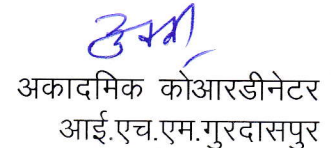 अकादमिक कोआरडीनेटर
आई.एच.एम.गुरदासपुर